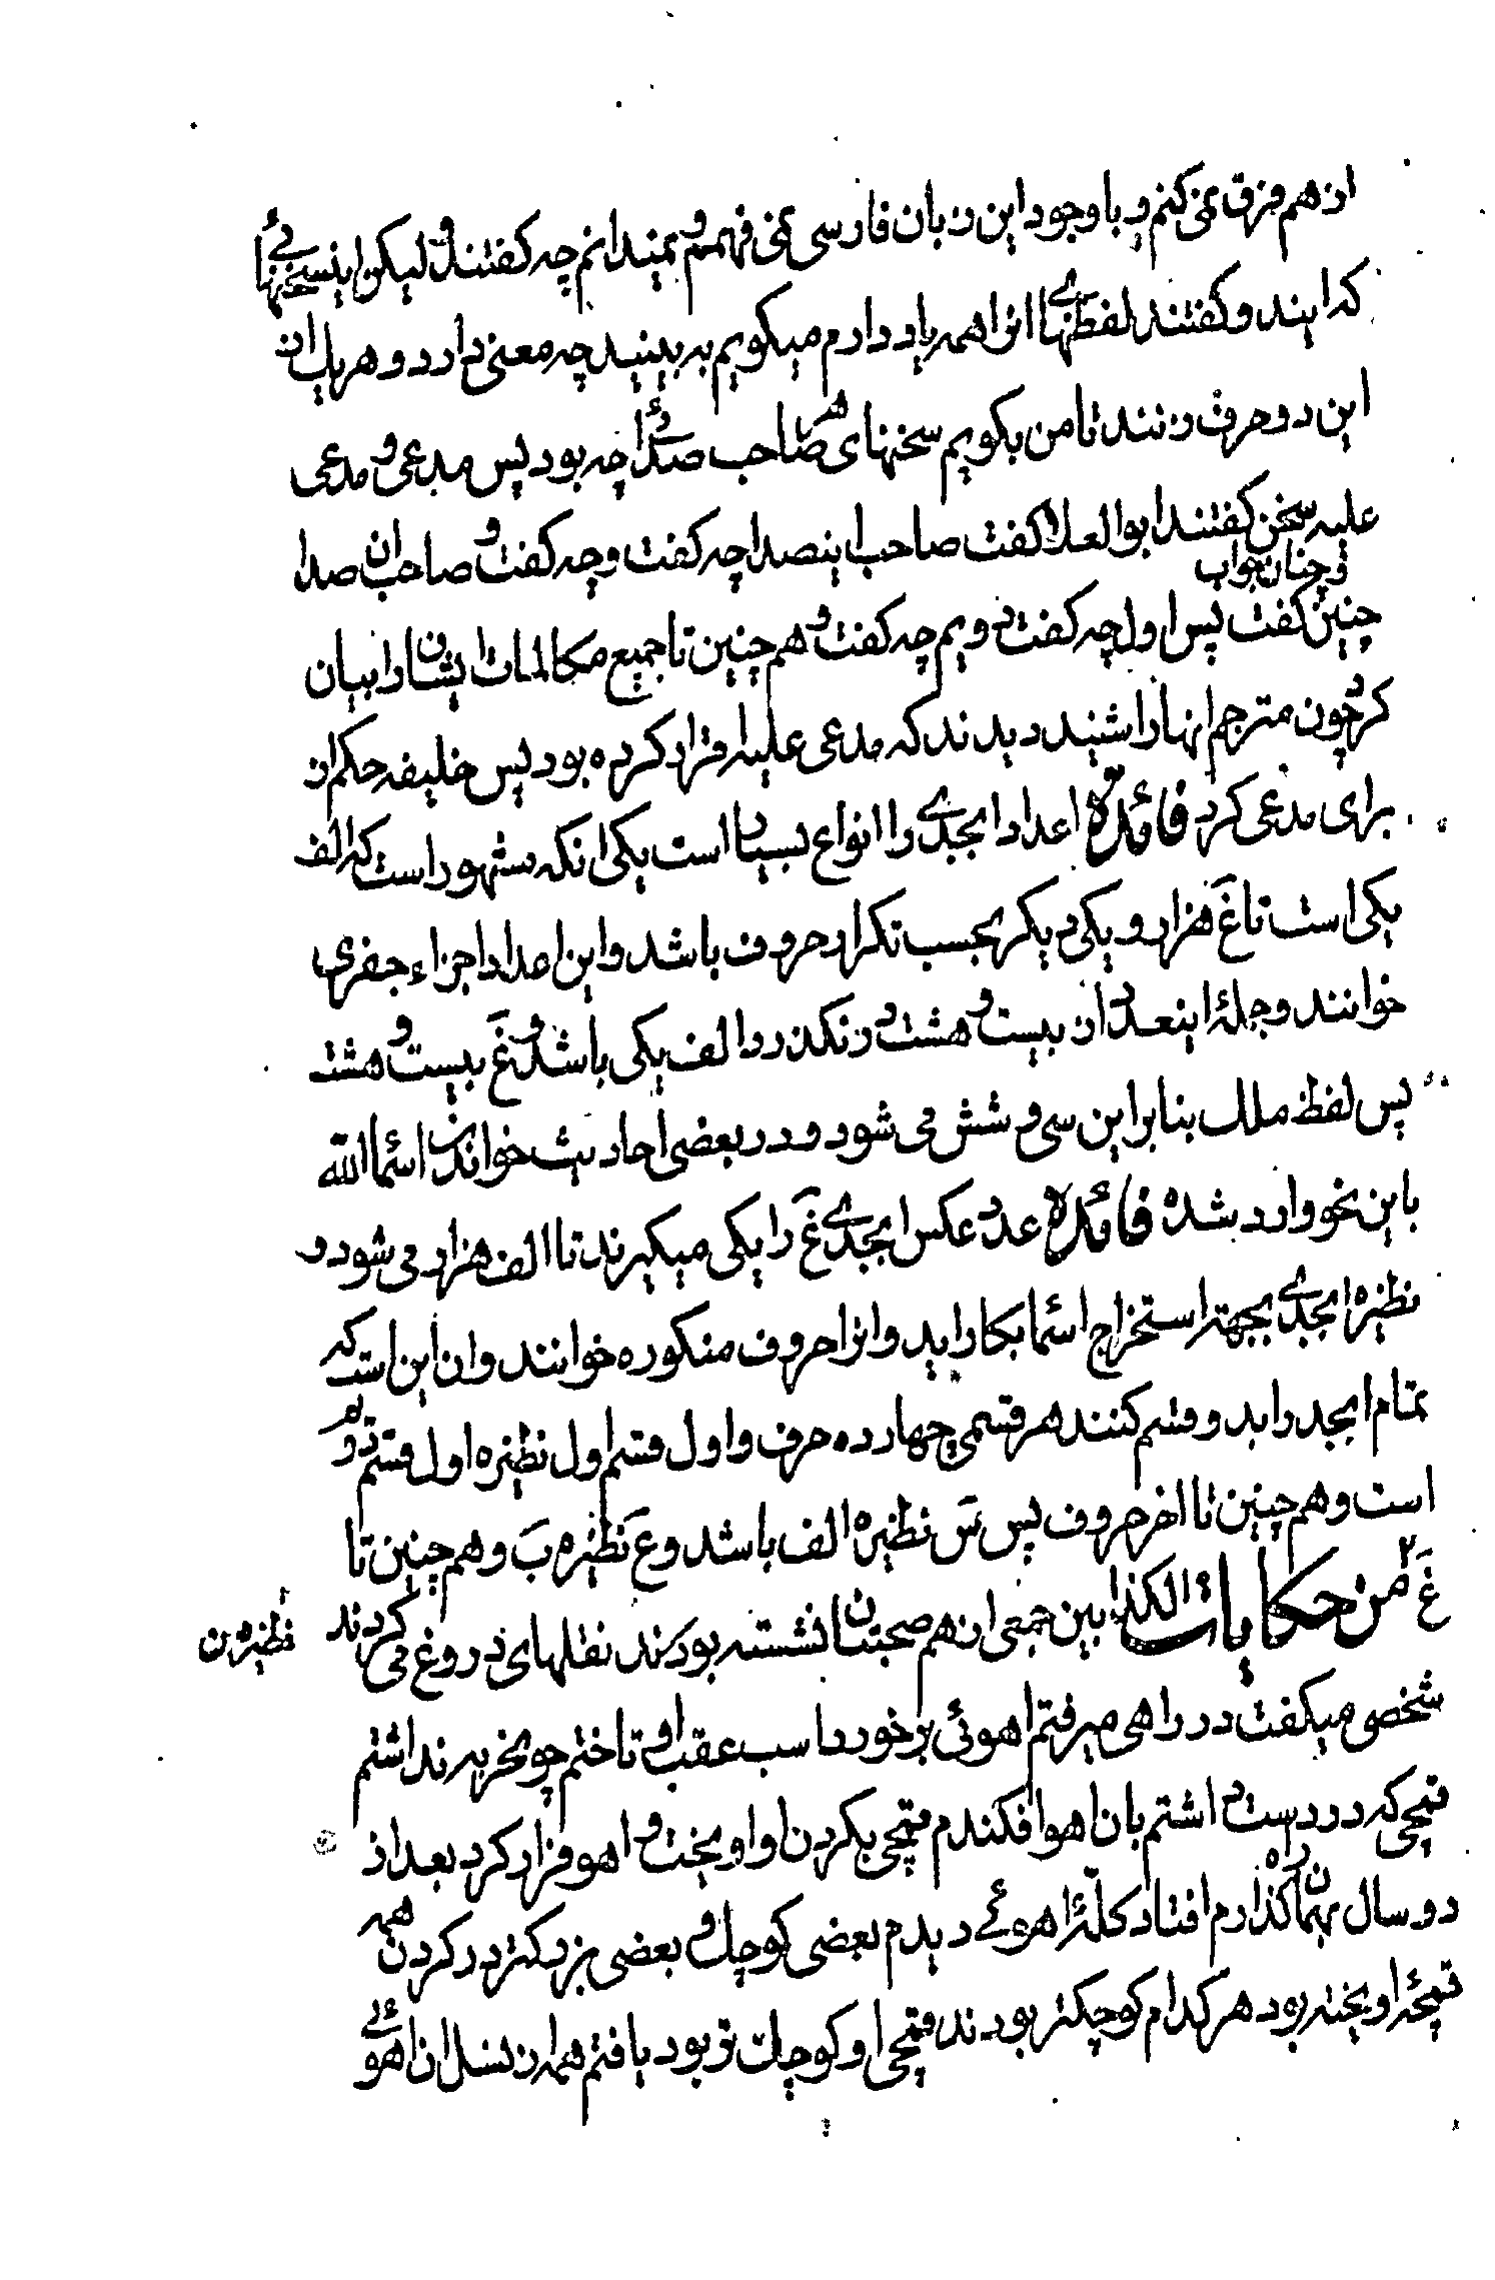 از هم فرق نمی کنم و با وجود این زبان فارسی نمی فهمم و نمیدانم چه کفتند و لیکن اینسخنهائی
که ایند و کفتند لفظهای انرا همه یاد دارم میکویم به بینید چه معنی دارد و هر یک از
این دو حرف زنند تا من بکویم سخنهای هر صاحب صدائی چه بود پس مدعی و مدعی
علیه سخن کفتند ابوالعلا کفت صاحب اینصدا چه کفت و چه کفت و صاحب ان صدا
و چنان جواب
چنین کفت پس اول چه کفت دویم چه کفت و هم چنین تا جمیع مکالمات ایشان را بیان
کرد چون مترجم انها را شنید دیدند که مدعی علیه اقرار کرده بود پس خلیفه حکم از
برای مدعی کرد فائده اعداد ابجدی را انواع بسیار است یکی انکه مشهور است که الف
یکی است تا غ هزار و یکی دیکر بحسب تکرار حروف باشد و این اعداد اجزاء جفری
خوانند و جملهٔ اینعدد از بیست و هشت در نکذرد الف یکی باشد و غ بیست و هشت
پس لفظ ملک بنا بر این سی و شش می شود و در بعضی احادیث خواندن اسماء الله
باین نحو وارد شده فائده عدد عکس ابجدی غ را یکی میکیرند تا الف هزار می شود و
نظیره ابجدی بجهته استخراج اسما بکار اید و انرا حروف منکوره خوانند و ان این است که
تمام ابجد را بدو قسم کنند هر قسمی چهارده حرف و اول قسم اول نظیره اول قسم دوم
است و هم چنین تا اخر حروف پس س نظیره الف باشد و ع نظیره ب و هم چنین تا
غ من حکایات الکذابین جمعی از هم صحبتان نشسته بودند نقلهای دروغ می کردند نظیره ن
شخصی میکفت در راهی میرفتم اهوئی بر خورد اسب عقب او تاختم چو نحربه نداشتم
قمچی که در دست داشتم بان اهو افکندم قمچی بکردن او اویخت و اهو فرار کرد بعد از
دو سال بهمان راه کذارم افتاد کلهٔ اهوئے دیدم بعضی کوچک و بعضی بزرکتر در کردن همه
قمچئ اویخته بود هر کدام کوچکتر بودند قمچی او کوچک تر بود یافتم همه از نسل ان اهوئے